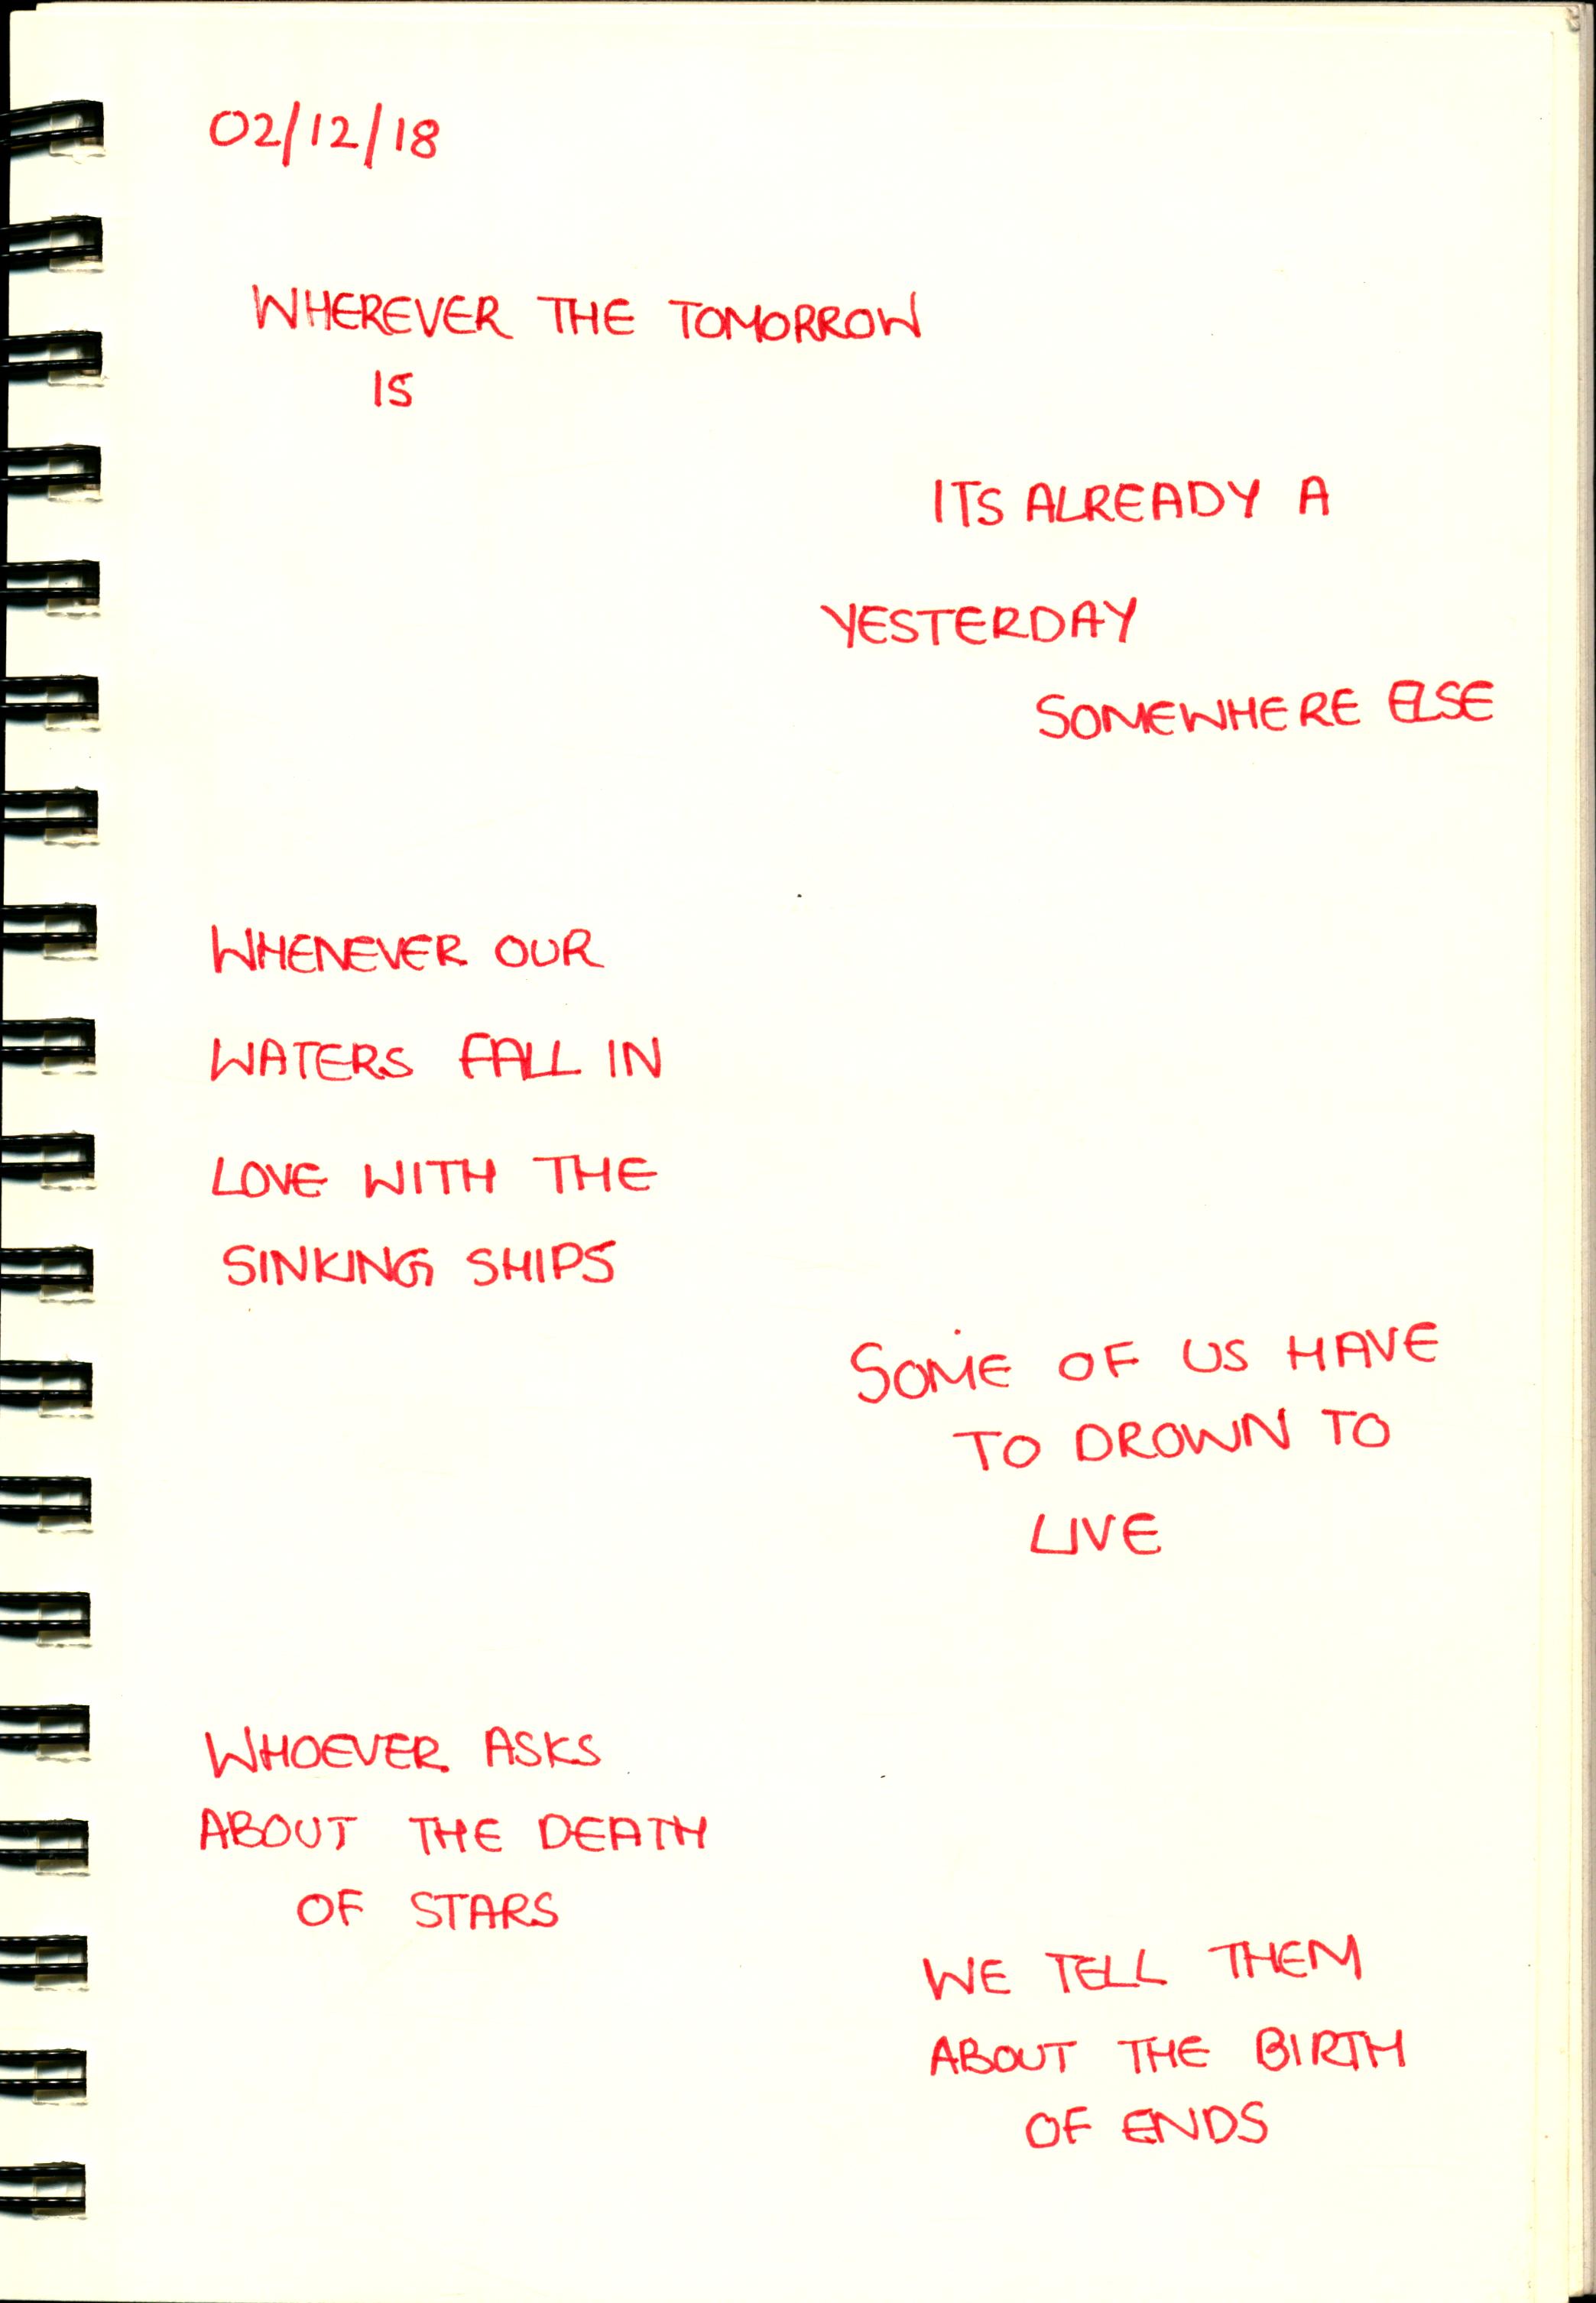 02/12/18
WHEREVER THE TOMORROW
IS
ITS ALREADY A
YESTERDAY
SOMEWHERE ELSE
WHENEVER OUR
WATERS FALL IN
LOVE WITH THE
SINKING SHIPS
SOME OF US HAVE
TO DROWN TO
LIVE
WHOEVER ASKS
ABOUT THE DEATH
OF STARS
WE TELL THEM
ABOUT THE BIRTH
OF ENDS